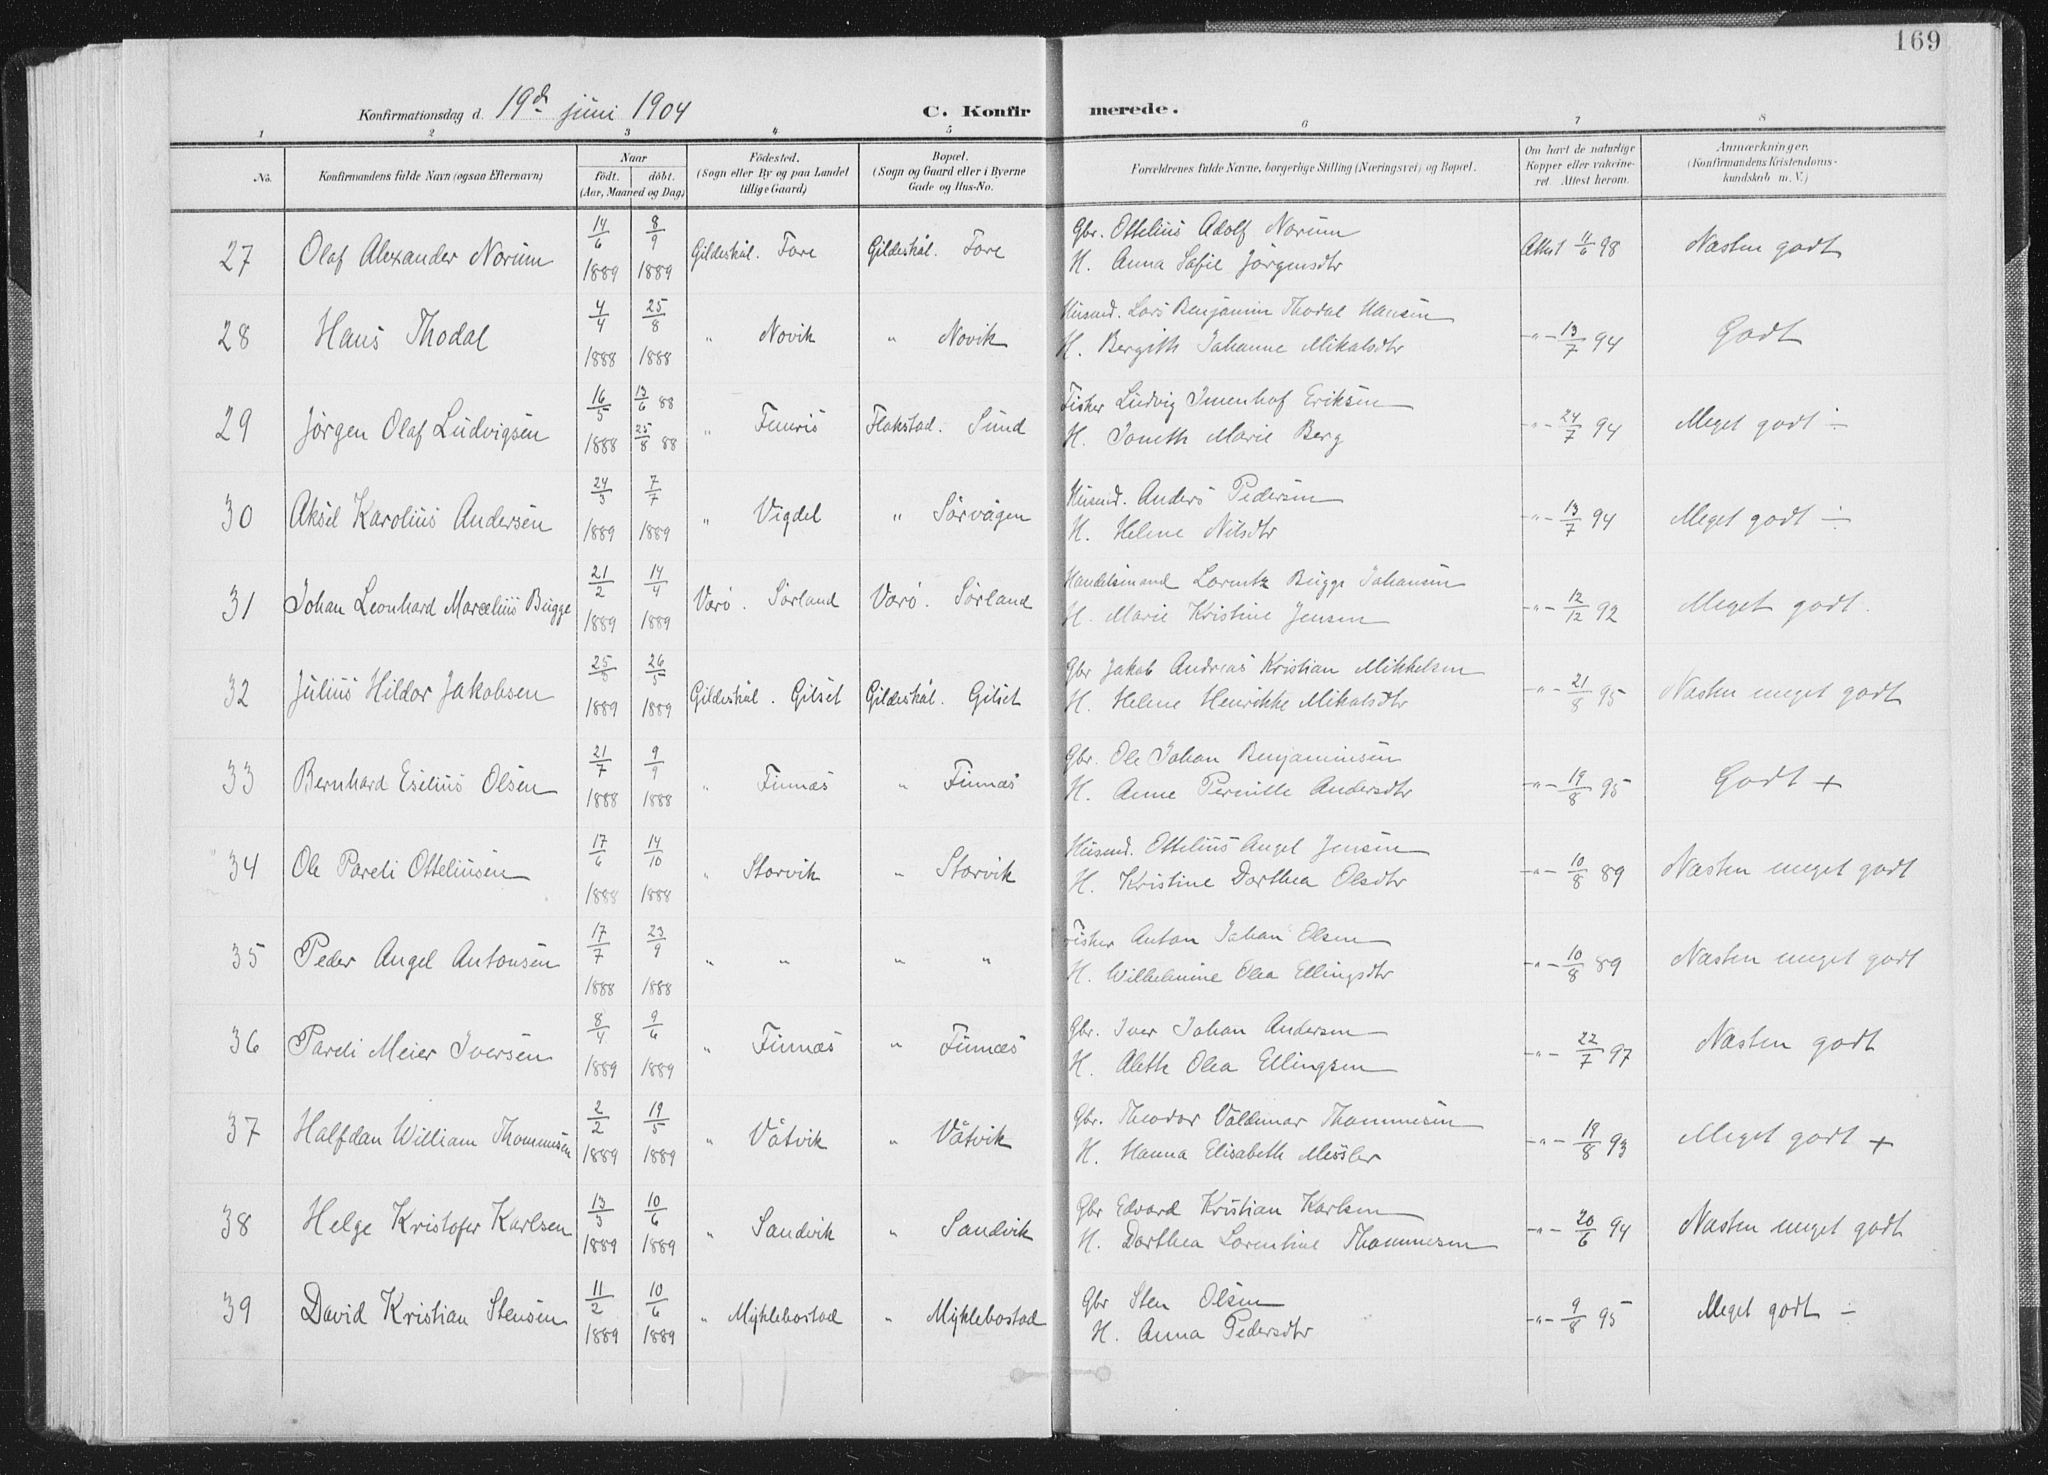 169
Konfirmationsdag d. 19d juni 1904 C. Konfirmerede.
1 2 3 4 5 6 7 8
No. Konfirmandens fulde Navn (ogsaa Efternavn) Naar født. døbt. (Aar, Maaned og Dag) Fødested. (Sogn eller By og paa Landet tillige Gaard) Bopæl. (Sogn og Gaard eller i Byerne Gade og Hus-No. Forældrenes fulde Navne, borgerlige Stilling (Næringsvei) og Bopæl. Om havt de naturlige Kopper eller vakcineret. Attest herom. Anmærkninger, (Konfirmandens Kristendomskundskab m. V.)
27 Olaf Alexander Norum 14/6 1889 8/9 1889 Gildeskål. Fore Gildeskål. Fore Gbr. Ottelius Adolf Norum
H. Anna Sofie Jørgensdtr Attest 11/6 98 Næsten godt
28 Hans Thodal 4/4 1888 25/8 1888 " Novik " Novik Husmd. Lars Benjamin Thodal Hansen
H. Bergith Johanne Mikalsdtr -"- 13/7 94 Godt
29 Jørgen Olaf Ludvigsen 16/5 1888 13/6 88 25/8 88 " Finnris Flakstad. Sund Fisker Ludvig Imenhof Eriksen
H. Joneth Marie Berg -"- 24/7 94 Meget godt ÷
30 Aksel Karolius Andersen 24/3 1889 7/7 1889 " Vigdel " Sørvågen Husmd. Anders Pedersen
H. Helene Nilsdtr -"- 13/7 94 Meget godt ÷
31 Johan Leonhard Marcelius Bugge 21/2 1889 14/4 1889 Værø. Sørland Værø. Sørland Handelsmand Lorentz Bugge Johansen
H. Marie Kristine Jensen -"- 12/12 92 Meget godt.
32 Julius Hildor Jakobsen 25/3 1889 26/5 1889 Gildeskål. Gilset Gildeskål. Gilset Gbr Jakob Andreas Kristian Mikkelsen
H. Helene Henrikke Mikalsdtr -"- 21/8 95 Næsten meget godt
33 Bernhard Eselius Olsen 21/7 1888 9/9 1888 " Finnæs " Finnæs Gbr. Ole Johan Benjaminsen
H. Anne Pernille Andersdtr -"- 19/8 95 Godt +
34 Ole Pareli Otteliusen 17/6 1888 14/10 1888 " Storvik " Storvik Husmd. Ottelius Angel Jensen
H. Kristine Dorthea Olsdtr -"- 10/8 89 Næsten meget godt
35 Peder Angel Antonsen 17/7 1888 23/9 1888 " " " " Fisker Anton Johan Olsen
H. Wilhelmine Olea Ellingsdtr -"- 10/8 89 Næsten meget godt
36 Pareli Meier Iversen 8/4 1889 9/6 1889 " Finnæs " Finnæs Gbr. Iver Johan Andersen
H. Aleth Olea Ellingsen -"- 22/7 97 Næsten godt
37 Halfdan William Thommesen 2/2 1889 19/5 1889 " Våtvik " Våtvik Gbr. Theodor Valdemar Thommesen
H. Hanna Elisabeth Missler -"- 19/8 93 Meget godt +
38 Helge Kristofer Karlsen 13/3 1889 10/6 1889 " Sandvik " Sandvik Gbr Edvard Kristian Karlsen
H. Dorthea Lorentine Thommesen -"- 20/6 94 Næsten meget godt
39 David Kristian Stensen 11/2 1889 10/6 1889 " Myklebostad " Myklebostad Gbr Sten Olsen
H. Anna Pedersdtr -"- 9/8 95 Meget godt ÷